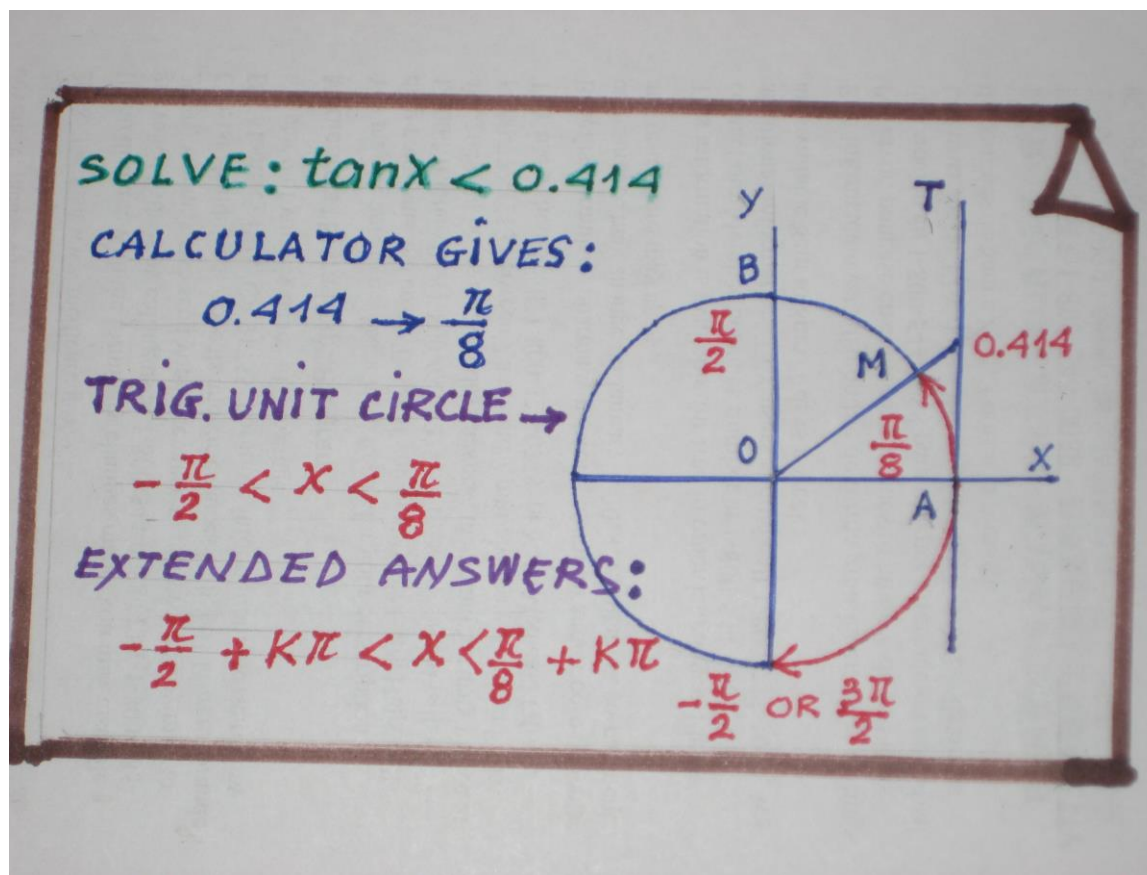 SOLVE: tanx < 0.414
CALCULATOR GIVES:
0.414 → π/8
TRIG. UNIT CIRCLE →
-π/2 < x < π/8
EXTENDED ANSWERS:
-π/2 + Kπ < x < π/8 + Kπ
Y
T
B
π/2
M
0.414
O
π/8
X
A
-π/2 OR 3π/2